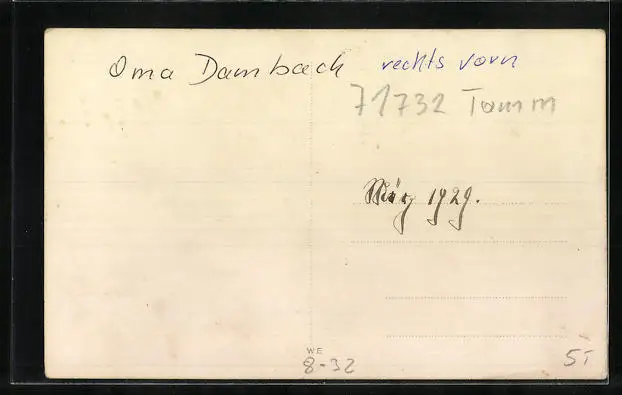 Oma Dambach rechts vorn
71732 Tamm
März 1929.
WE
8-32
5T